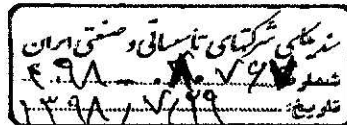 سندیکای شرکتهای تأسیساتی و صنعتی ایران
شماره:
تاریخ: ۱۳۹۸/۷/۲۹